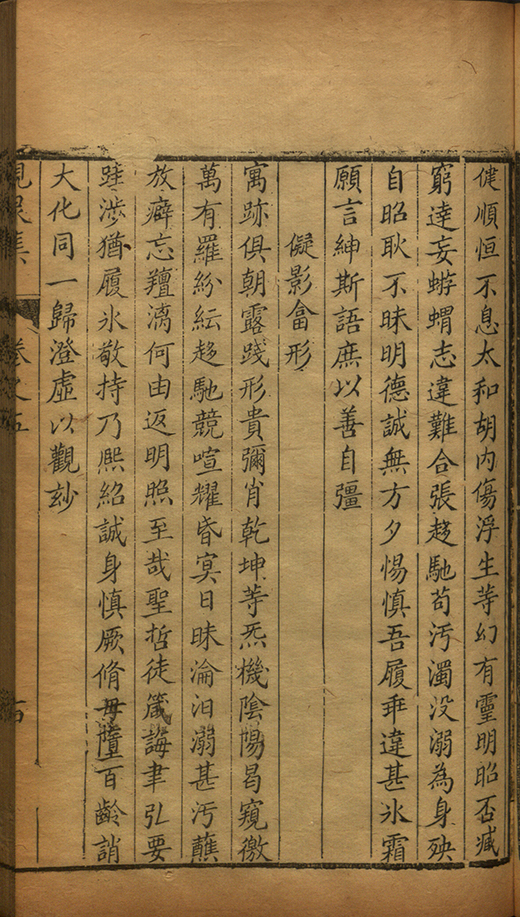 健順恒不息太和胡内傷浮生䓁幻有靈明昭否臧
窮達妄蝣蝟志違難合張趍馳苟汚濁没溺為身殃
自昭耿不昧明德誠無方夕惕慎吾履乖違甚氷霜
願言紳斯語庶以善自彊
儗影畣形
寓跡俱朝露踐形貴彌肖乾坤䓁炁機陰陽曷窺徼
萬有羅紛紜趍馳競喧耀昏冥日昧淪汩溺甚汚蘸
放癖忘羶漓何由返明照至哉聖哲徒箴誨聿弘要
跬渉猶履氷敬持乃熈紹誠身慎厥脩毋墮百齡誚
大化同一歸澄虚以觀玅
卷之五